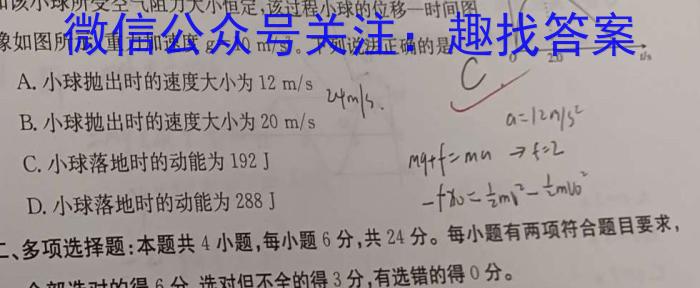 知该小球所受空气阻力大小恒定,该过程小球的位移—时间图
像如图所示,重力加速度g=10 m/s²。下列说法正确的是
微信公众号关注：趣找答案
2.0 t/s
C
A. 小球抛出时的速度大小为 12 m/s
24m/s.
a=12m/s²
B. 小球抛出时的速度大小为 20 m/s
C. 小球落地时的动能为 192 J
mg+f=ma → f=2
D. 小球落地时的动能为 288 J
二、多项选择题:本题共 4 小题,每小题 6 分,共 24 分。每小题有两项符合题目要求,
全部选对的得 6 分,选对但不全的得 3 分,有选错的得 0 分。